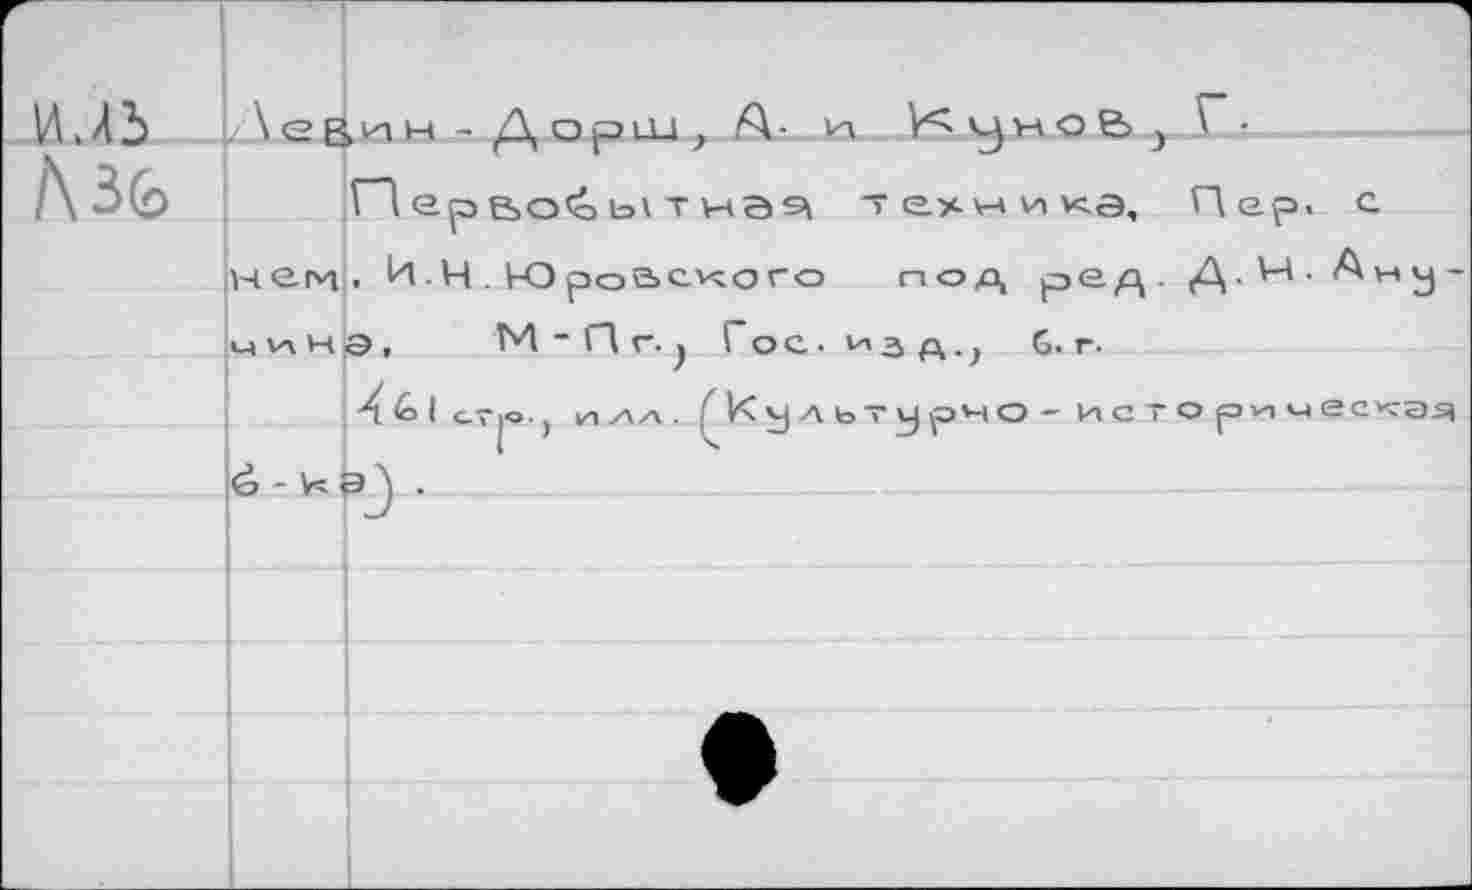 И.ЛЪ Левин - Дорш, А. и Кунов, Г.
Л36 Первобытная техника, Пер. с
нем. И.Н. Юровского под ред. Д.Н. Ану-
чина, М-Пг., Гос. изд., б.г.
461 стр., илл. (Культурно-историческая
б-ка).